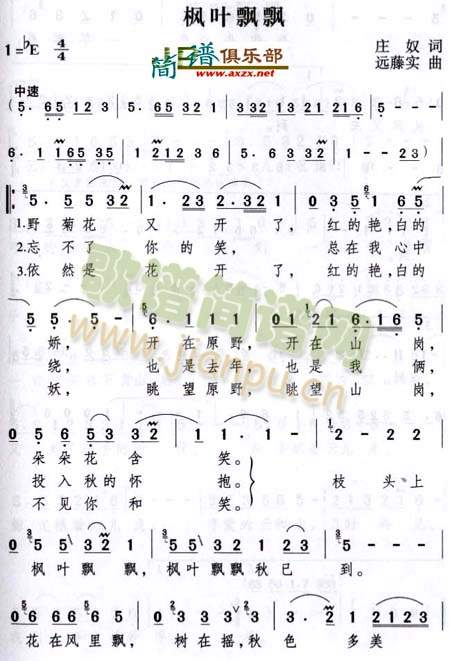 枫叶飘飘
简谱俱乐部
www.axzx.net
1=♭E 4/4
庄奴 词
远藤实 曲
中速
(5. 65 123 | 5.65321 | 1321321216 |
6. 1 116535 | 121236 5 | 5.65 32 | 1--23)
5. 5 532 | 1.23 2.12 | 035 165
1.野菊花 又开了,红的艳,白的
2.忘不了 你的笑,总在我心中
3.依然是 花开了,红的艳,白的
5 55- | 6.111- | 01216.165
娇, 开在原野,开在山岗,
绕, 也是去年,也是我俩,
妖, 眺望原野,眺望山岗,
0565332 | 11.1- | 2-22
朵朵花含笑。
投入秋的怀抱。 枝头上
不见你和笑。
055\332 | 1.353212 | 3---
枫叶飘飘,枫叶飘飘秋已到。
066665 | 3.323V3 | 2321616
花在风里飘,树在摇,秋色多美
歌谱简谱网
www.jianpu.cn